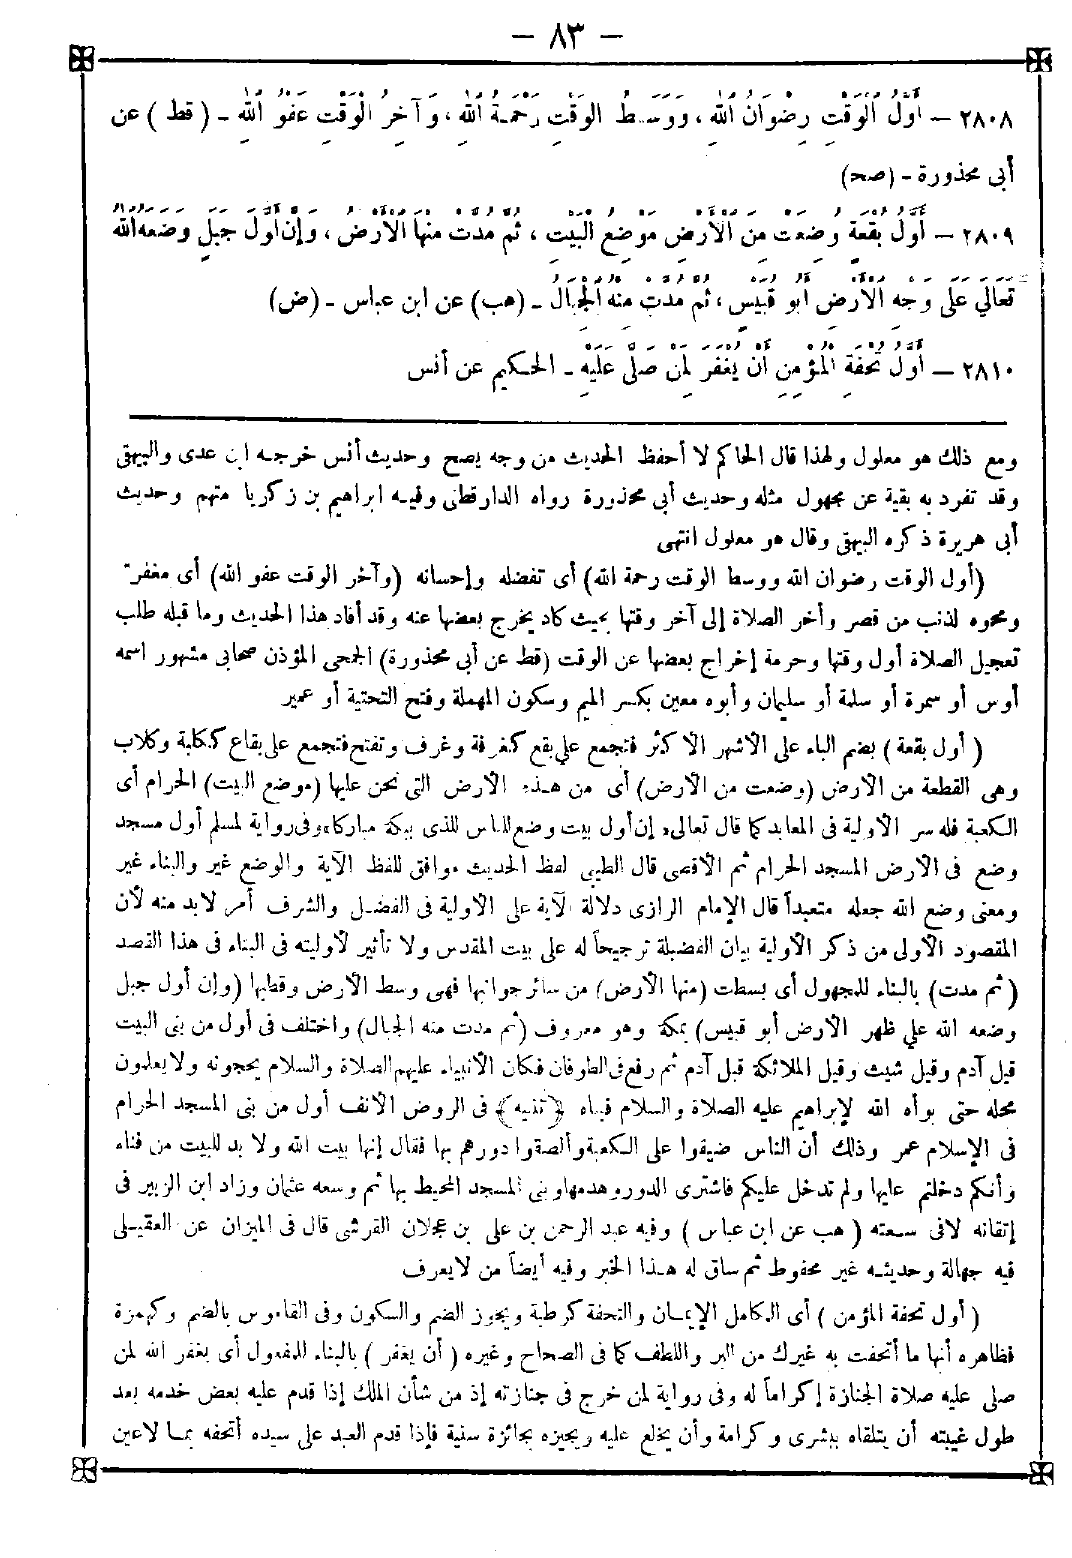 — ٨٣ —
٢٨٠٨ — أَوَّلُ الْوَقْتِ رِضْوَانُ اللهِ ، وَوَسَطُ الْوَقْتِ رَحْمَةُ اللهِ ، وَآخِرُ الْوَقْتِ عَفْوُ اللهِ ـ ( قط ) عن
أبى محذورة ـ (صح)
٢٨٠٩ — أَوَّلُ بُقْعَةٍ وُضِعَتْ مِنَ الْأَرْضِ مَوْضِعُ الْبَيْتِ ، ثُمَّ مُدَّتْ مِنْهَا الْأَرْضُ ، وَإِنَّ أَوَّلَ جَبَلٍ وَضَعَهُ اللهُ
تَعَالَى عَلَى وَجْهِ الْأَرْضِ أَبُو قُبَيْسٍ ، ثُمَّ مُدَّتْ مِنْهُ الْجِبَالُ ـ (هب) عن ابن عباس ـ (ض)
٢٨١٠ — أَوَّلُ تُحْفَةِ الْمُؤْمِنِ أَنْ يُغْفَرَ لِمَنْ صَلَّى عَلَيْهِ ـ الحكيم عن أنس
ومع ذلك هو معلول ولهذا قال الحاكم لا أحفظ الحديث من وجه يصح وحديث أنس خرجه ابن عدى والبيهقى
وقد تفرد به بقية عن مجهول مثله وحديث أبى محذورة رواه الدارقطنى وفيه ابراهيم بن زكريا متهم وحديث
أبى هريرة ذكره البيهقى وقال هو معلول انتهى
(أول الوقت رضوان الله ووسط الوقت رحمة الله) أى تفضله وإحسانه (وآخر الوقت عفو الله) أى مغفرته
ومحوه لذنب من قصر وأخر الصلاة إلى آخر وقتها بحيث كاد يخرج بعضها عنه وقد أفاد هذا الحديث وما قبله طلب
تعجيل الصلاة أول وقتها وحرمة إخراج بعضها عن الوقت (قط عن أبى محذورة) الجمحى المؤذن صحابى مشهور اسمه
أوس أو سمرة أو سلمة أو سليمان وأبوه معين بكسر الميم وسكون المهملة وفتح التحتية أو عمير
( أول بقعة ) بضم الباء على الأشهر الأكثر فتجمع على بقع كغرفة وغرف وتفتح فتجمع على بقاع ككلبة وكلاب
وهى القطعة من الأرض (وضعت من الأرض) أى من هذه الأرض التى نحن عليها (موضع البيت) الحرام أى
الكعبة فله سر الأولية فى المعابد كما قال تعالى «إن أول بيت وضع للناس للذى ببكة مباركا» وفى رواية لمسلم أول مسجد
وضع فى الأرض المسجد الحرام ثم الأقصى قال الطيبى لفظ الحديث موافق للفظ الآية والوضع غير والبناء غير
ومعنى وضع الله جعله متعبداً قال الإمام الرازى دلالة الآية على الأولية فى الفضل والشرف أمر لابد منه لأن
المقصود الأولى من ذكر الأولية بيان الفضيلة ترجيحاً له على بيت المقدس ولا تأثير لأوليته فى البناء فى هذا القصد
( ثم مدت) بالبناء للمجهول أى بسطت (منها الأرض) من سائر جوانبها فهى وسط الأرض وقطبها (وإن أول جبل
وضعه الله على ظهر الأرض أبو قبيس) بمكة وهو معروف (ثم مدت منه الجبال) واختلف فى أول من بنى البيت
قيل آدم وقيل شيث وقيل الملائكة قبل آدم ثم رفع فى الطوفان فكان الأنبياء عليهم الصلاة والسلام يحجونه ولا يعلمون
محله حتى بوأه الله لإبراهيم عليه الصلاة والسلام فبناه ﴿تنبيه﴾ فى الروض الأنف أول من بنى المسجد الحرام
فى الإسلام عمر وذلك أن الناس ضيقوا على الكعبة وألصقوا دورهم بها فقال إنها بيت الله ولا بد للبيت من فناء
وأنكم دخلتم عليها ولم تدخل عليكم فاشترى الدور وهدمها وبنى المسجد المحيط بها ثم وسعه عثمان وزاد ابن الزبير فى
إتقانه لافى سعته ( هب عن ابن عباس ) وفيه عبد الرحمن بن على بن عجلان القرشى قال فى الميزان عن العقيلى
فيه جهالة وحديثه غير محفوظ ثم ساق له هذا الخبر وفيه أيضاً من لايعرف
( أول تحفة المؤمن ) أى الكامل الإيمان والتحفة كرطبة ويجوز الضم والسكون وفى القاموس بالضم وكهمزة
فظاهره أنها ما أتحفت به غيرك من البر واللطف كما فى الصحاح وغيره ( أن يغفر ) بالبناء للمفعول أى يغفر الله لمن
صلى عليه صلاة الجنازة إكراماً له وفى رواية لمن خرج فى جنازته إذ من شأن الملك إذا قدم عليه بعض خدمه بعد
طول غيبته أن يتلقاه ببشرى وكرامة وأن يخلع عليه ويجيزه بجائزة سنية فإذا قدم العبد على سيده أتحفه بما لاعين